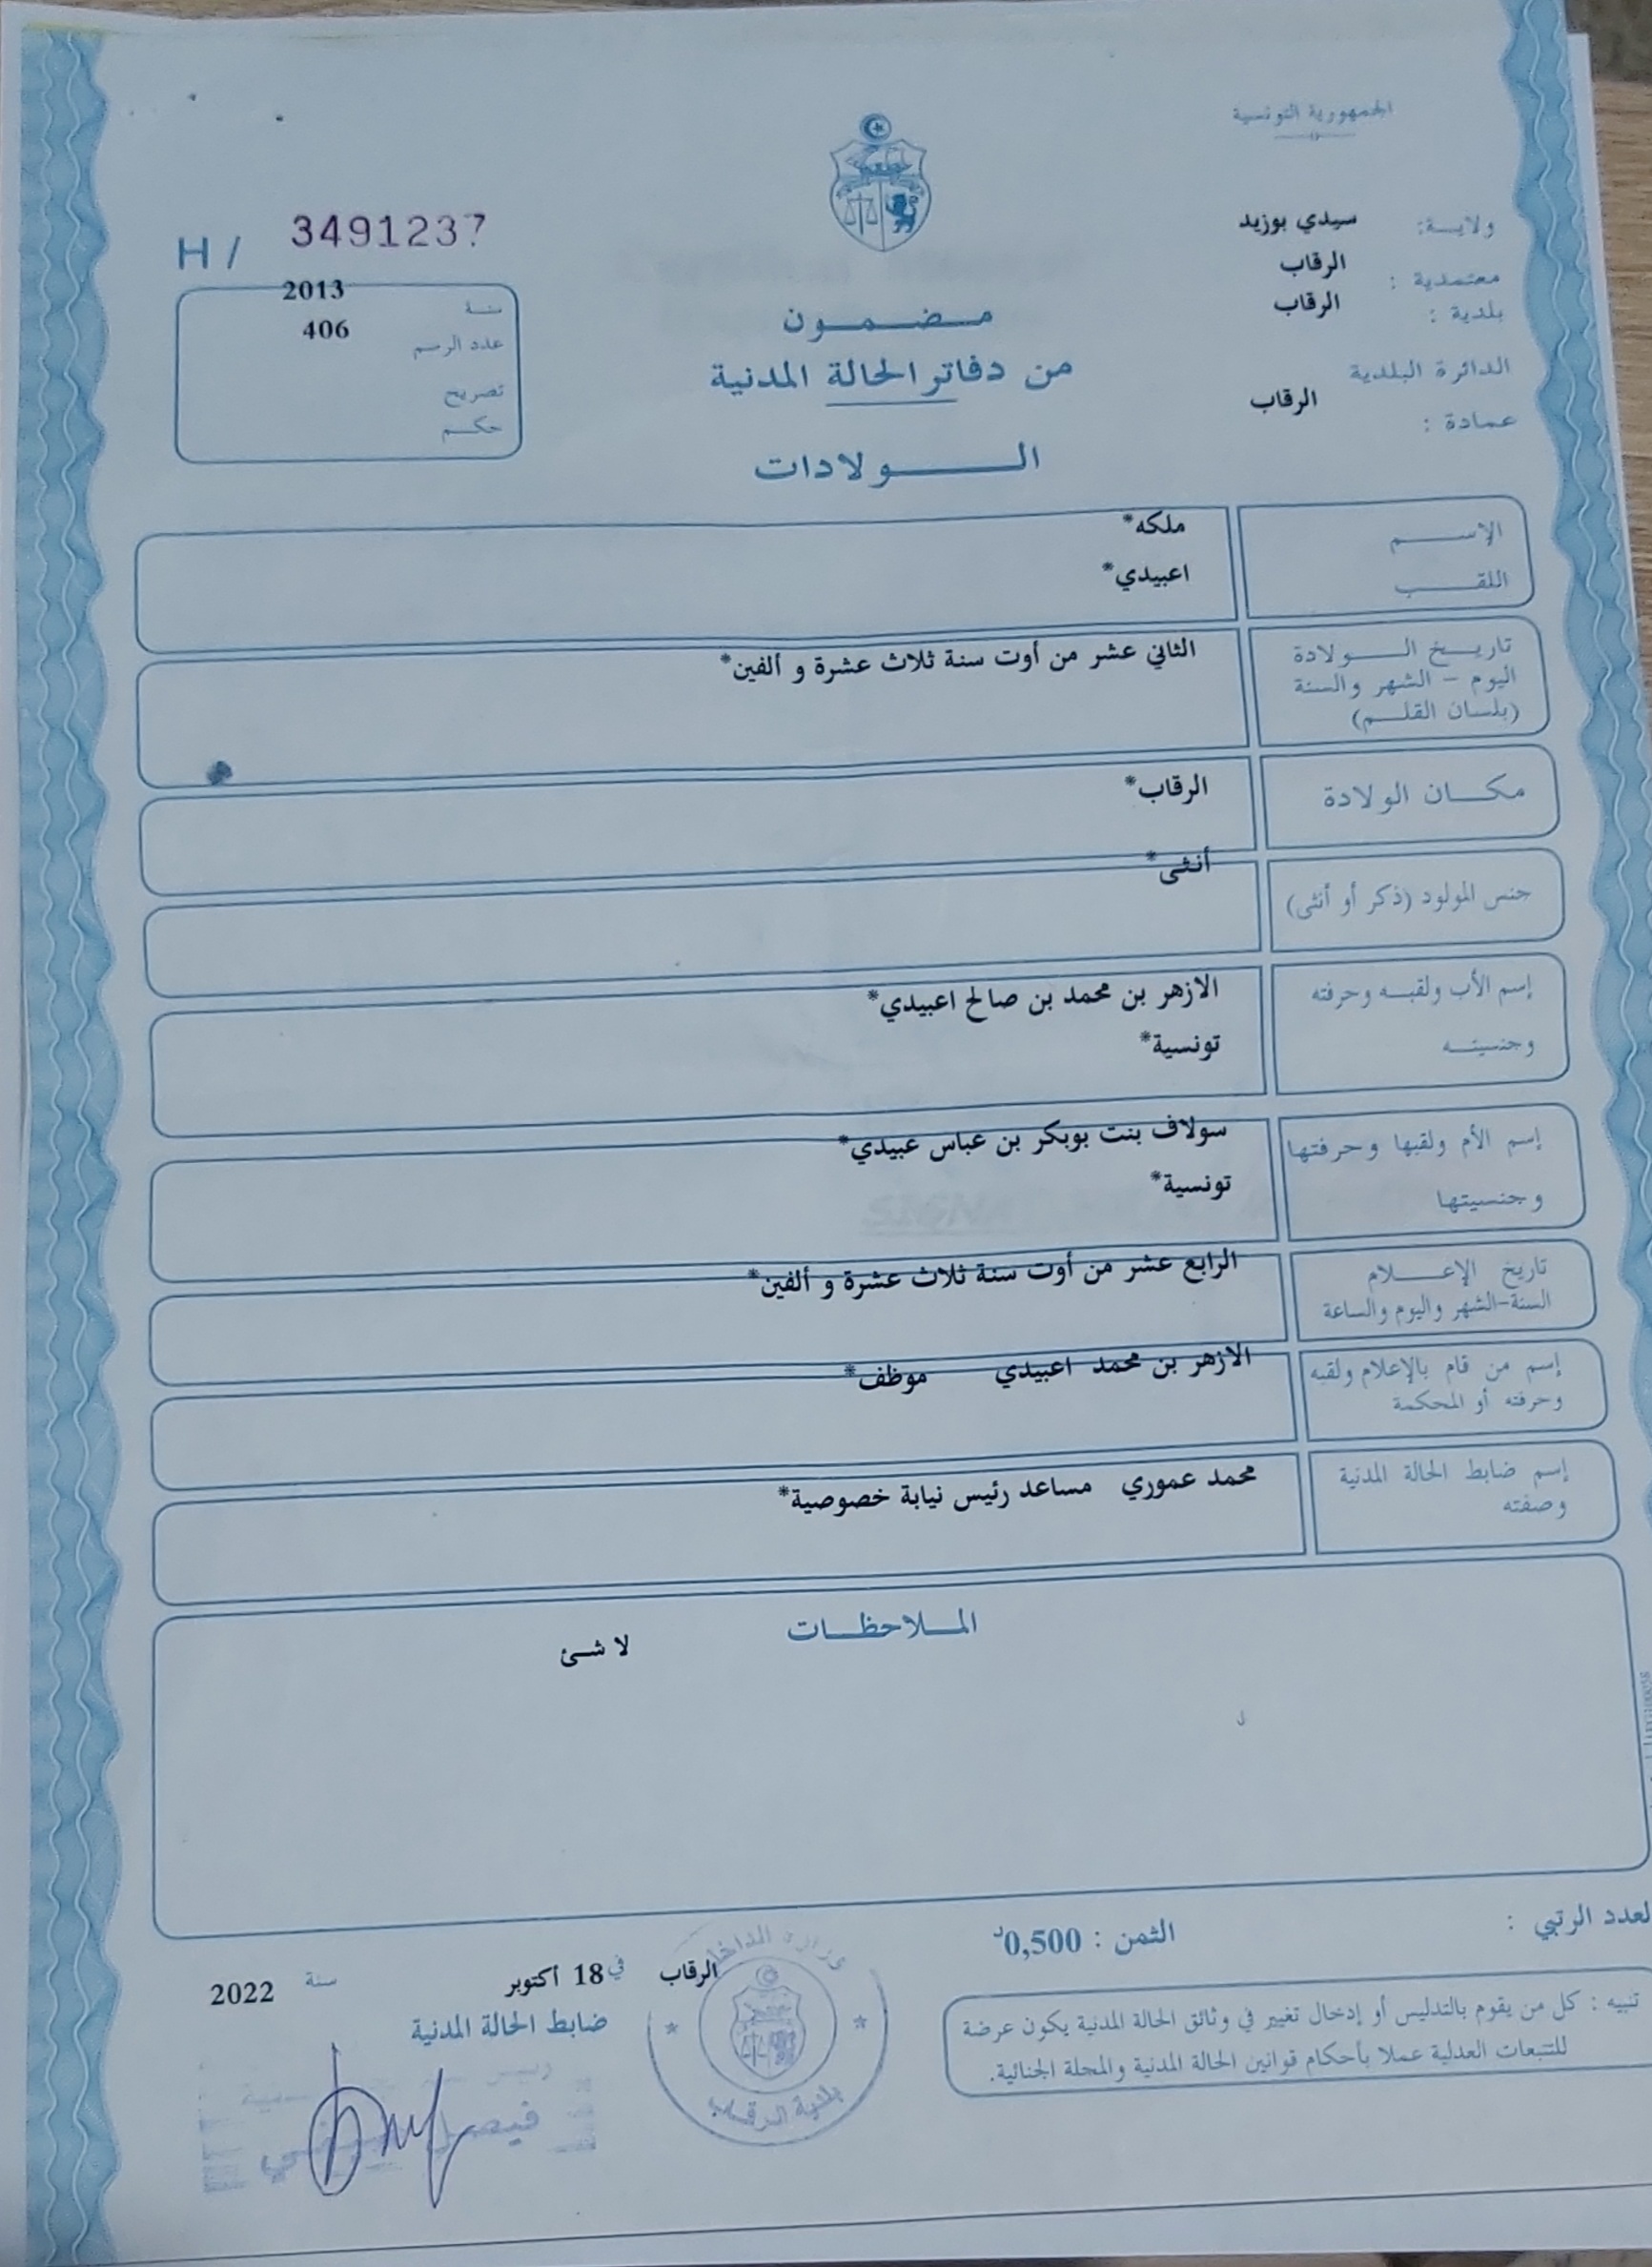 الجمهورية التونسية
ولاية: سيدي بوزيد
معتمدية : الرقاب
بلدية : الرقاب
الدائرة البلدية
عمادة : الرقاب
H / 3491237
سنة 2013
عدد الرسم 406
تصريح
حكم
مضمون
من دفاتر الحالة المدنية
الولادات
الإسم ملكه*
اللقب اعبيدي*
تاريخ الولادة
اليوم - الشهر والسنة
(بلسان القلم)
الثاني عشر من أوت سنة ثلاث عشرة و ألفين*
مكان الولادة الرقاب*
جنس المولود (ذكر أو أنثى) أنثى*
إسم الأب ولقبه وحرفته الازهر بن محمد بن صالح اعبيدي*
وجنسيته تونسية*
إسم الأم ولقبها وحرفتها سولاف بنت بوبكر بن عباس عبيدي*
وجنسيتها تونسية*
تاريخ الإعلام
السنة-الشهر واليوم والساعة
الرابع عشر من أوت سنة ثلاث عشرة و ألفين*
إسم من قام بالإعلام ولقبه
وحرفته أو المحكمة
الازهر بن محمد اعبيدي موظف*
إسم ضابط الحالة المدنية
وصفته
محمد عموري مساعد رئيس نيابة خصوصية*
الملاحظات
لا شئ
لعدد الرتبي :
الثمن : 0,500د
تنبيه : كل من يقوم بالتدليس أو إدخال تغيير في وثائق الحالة المدنية يكون عرضة
للتتبعات العدلية عملا بأحكام قوانين الحالة المدنية والمجلة الجنائية.
الرقاب في 18 أكتوبر سنة 2022
ضابط الحالة المدنية
وزارة الداخلية
بلدية الرقاب
رئيس
فيصل